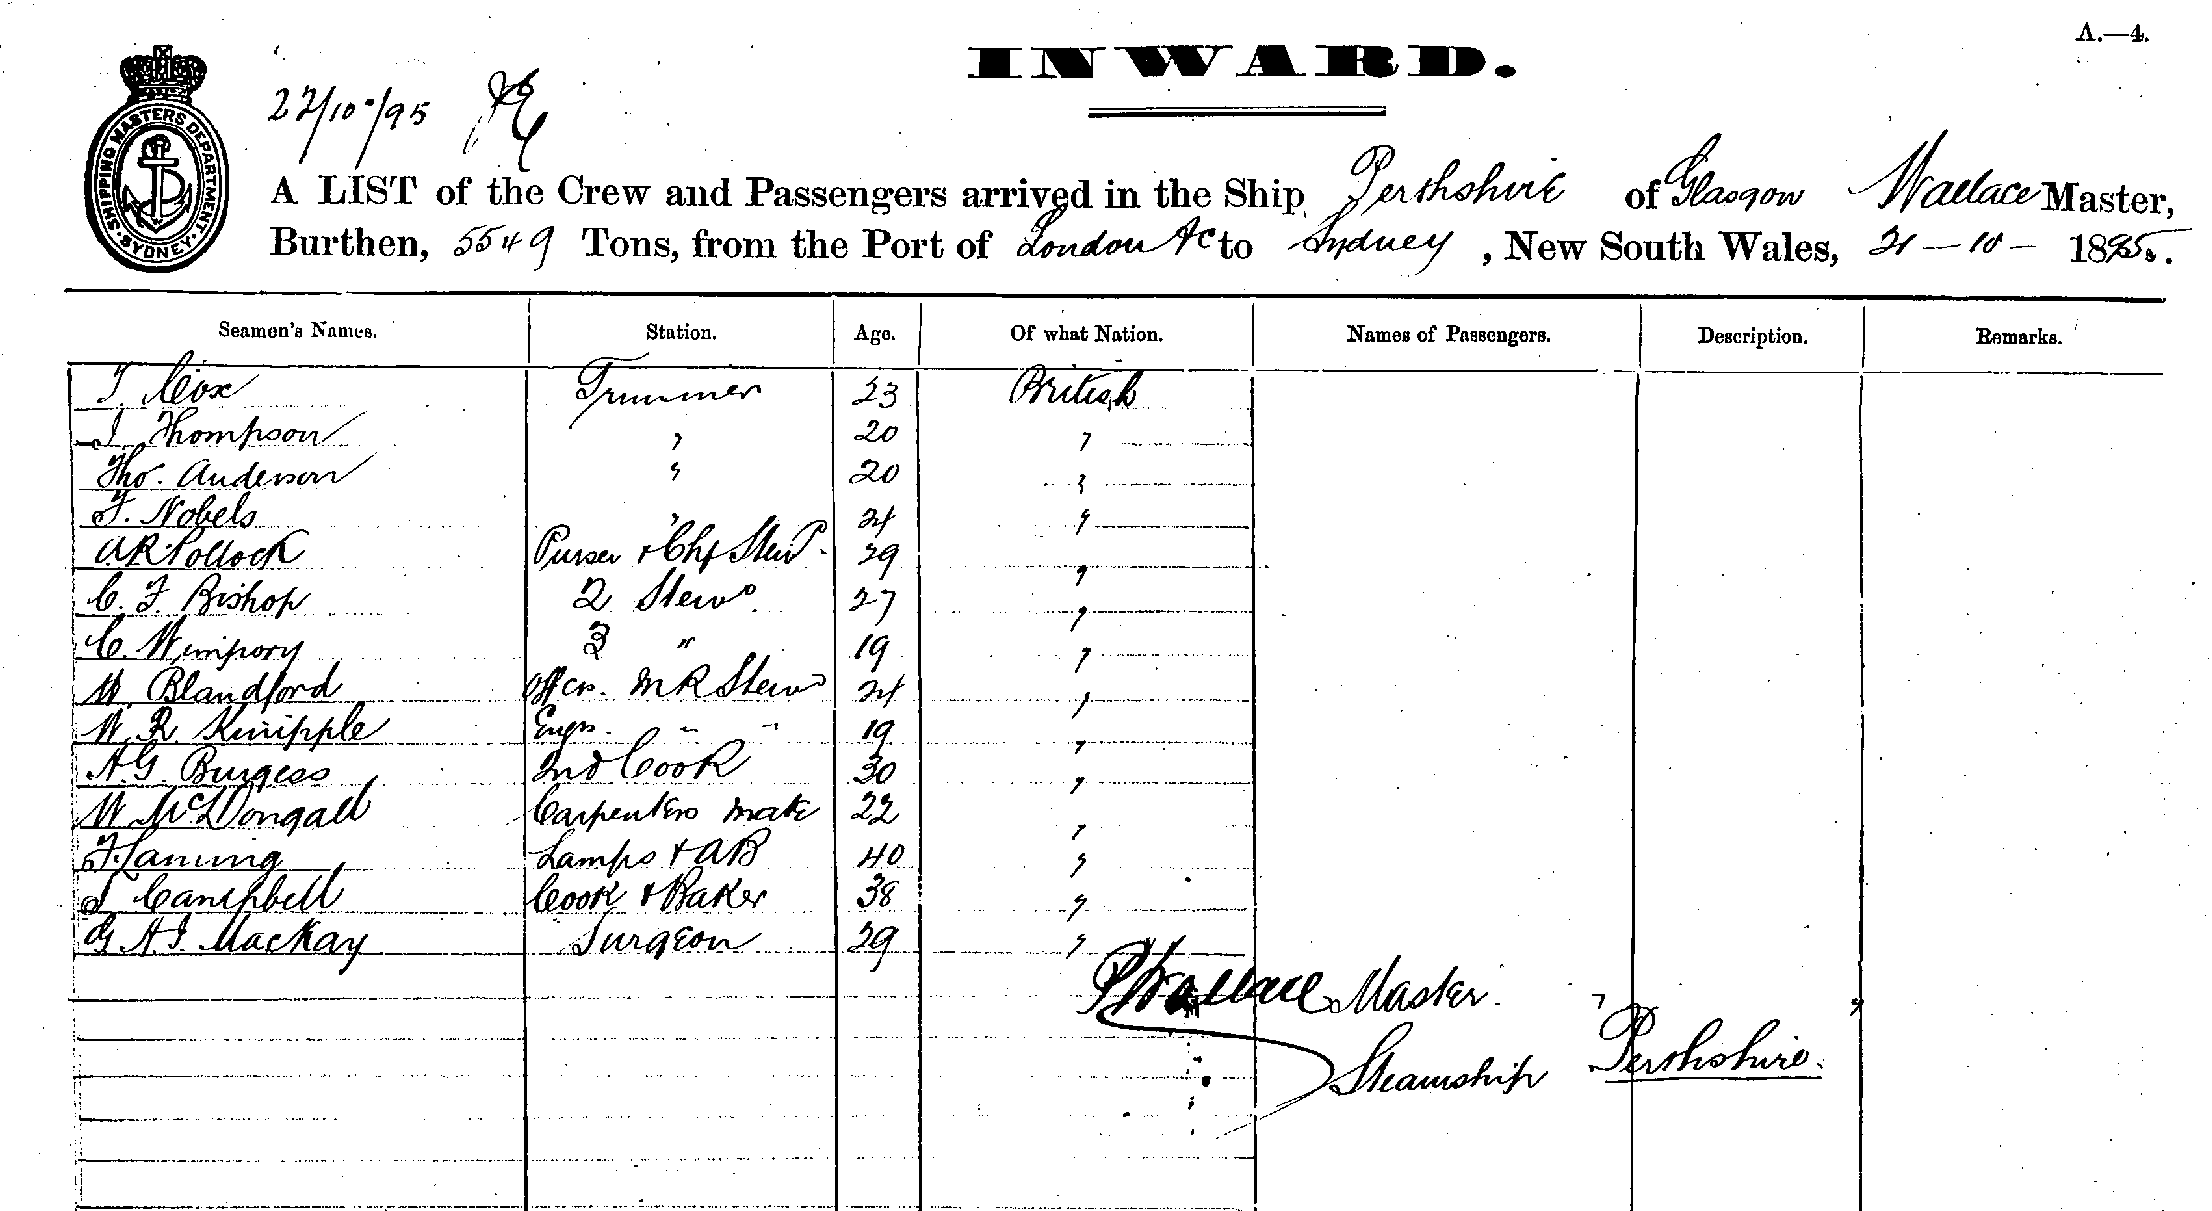 A.—4.
INWARD.
SHIPPING MASTERS DEPARTMENT. SYDNEY.
22/10/95
A LIST of the Crew and Passengers arrived in the Ship Perthshire of Glasgow Wallace Master,
Burthen, 5549 Tons, from the Port of London &c to Sydney, New South Wales, 21-10-1895.
Seamen's Names. Station. Age. Of what Nation. Names of Passengers. Description. Remarks.
T. Cox Trimmer 23 British
J. Thompson " 20 "
Tho. Anderson " 20 "
F. Nobels " 24 "
A R Pollock Purser & Chf Stewd. 29 "
C. F. Bishop 2 Stewd. 27 "
C. Wimpory 3 " 19 "
W. Blandford Offcrs. M R Stewd 24 "
W. R. Knipple Engrs. " " 19 "
A. G. Burgess 2nd Cook 30 "
W McDongall Carpenters mate 22 "
F. Laming Lamps & AB 40 "
J Campbell Cook & Baker 38 "
G A J. MacKay Surgeon 29 "
Wallace Master.
Steamship Perthshire.